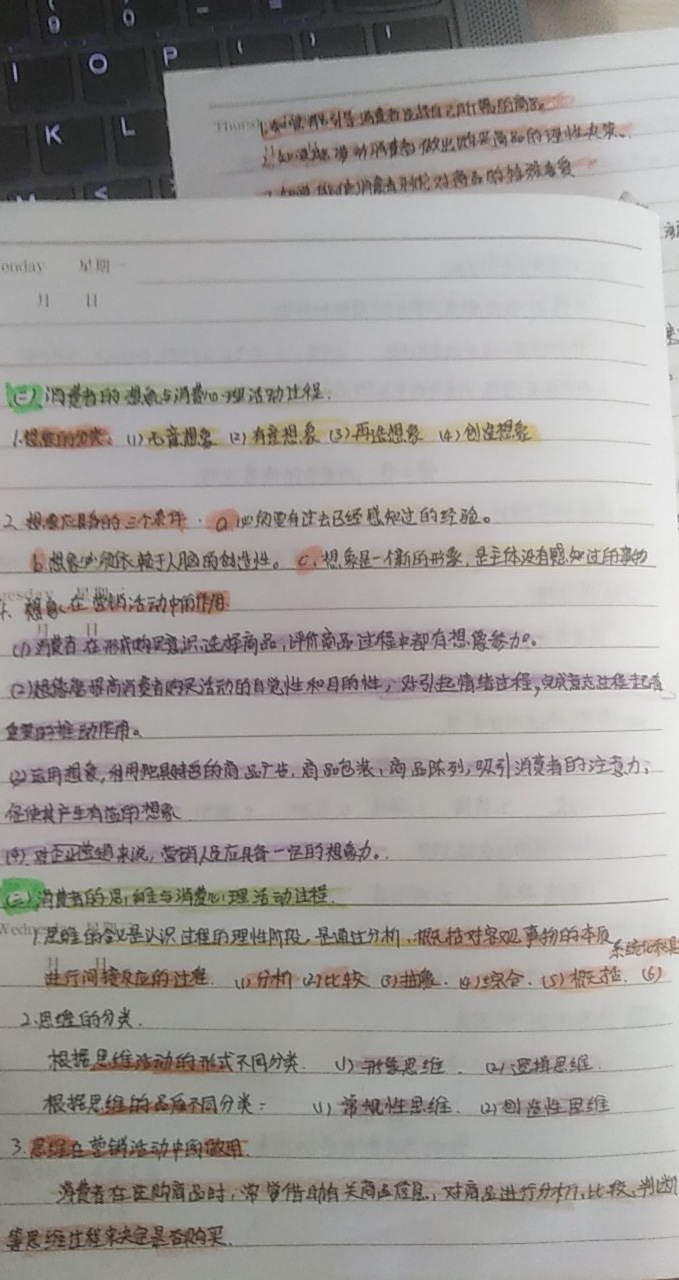 O P
K L
Thursd
1.知觉帮助引导消费者选择自己所需的商品。
2.知觉能带动消费者做出购买商品的理性决策。
3.知觉能使消费者形成对商品的特殊喜爱
onday 星期一
月 日
(二)消费者的想象与消费心理活动过程.
1.想象的分类:(1)无意想象 (2)有意想象 (3)再造想象 (4)创造想象
2.想象应具备的三个条件. a.必须要有过去已经感知过的经验。
b.想象必须依赖于人脑的创造性。 c.想象是一个新的形象,是主体没有感知过的事物
4.想象在营销活动中的作用.
(1)消费者在形成购买意识、选择商品,评价商品过程中都有想像参加。
(2)想像能提高消费者购买活动的自觉性和目的性,对引起情绪过程,完成意志过程起着
重要的推动作用。
(3)运用想象,利用独具特色的商品广告,商品包装,商品陈列,吸引消费者的注意力,
促使其产生有益的想象
(4)对企业营销来说,营销人员应具备一定的想象力。
(三)消费者的思维与消费心理活动过程.
Wednesd 星期三
1.思维的含义是认识过程的理性阶段,是通过分析,概括对客观事物的本质
进行间接反应的过程. (1)分析 (2)比较 (3)抽象. (4)综合. (5)概括. (6)
系统化和具
2.思维的分类.
根据思维活动的形式不同分类. (1)形象思维. (2)逻辑思维.
根据思维的品质不同分类: (1)常规性思维. (2)创造性思维
3.思维在营销活动中的做用.
消费者在选购商品时,常常借助有关商品信息,对商品进行分析,比较,判断
等思维过程来决定是否购买.